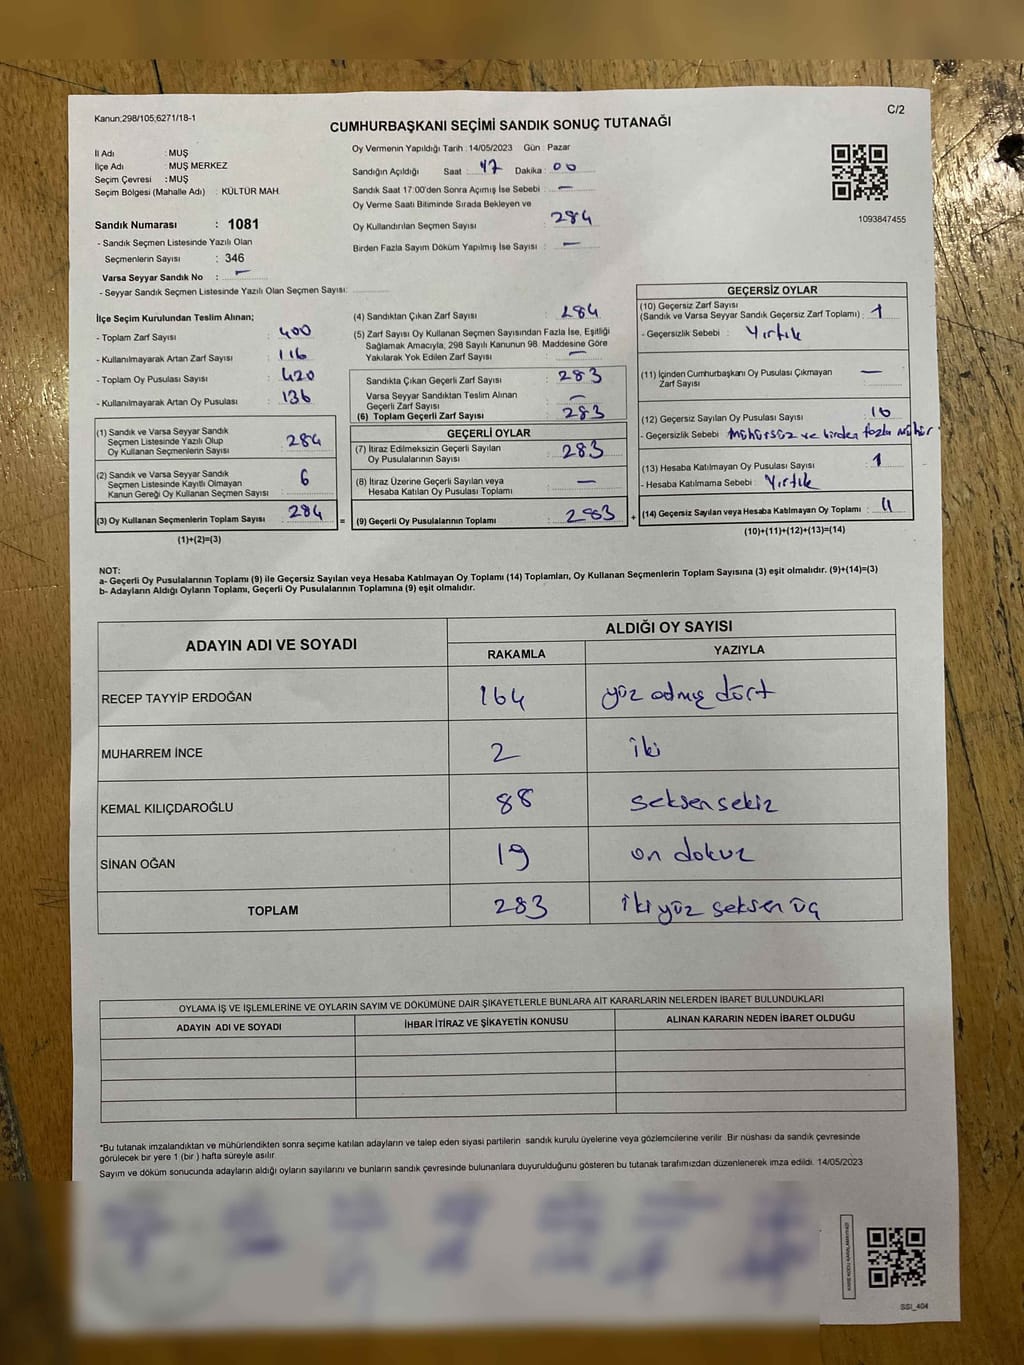 Kanun;298/105;6271/18-1
C/2
CUMHURBAŞKANI SEÇİMİ SANDIK SONUÇ TUTANAĞI
İl Adı : MUŞ
İlçe Adı : MUŞ MERKEZ
Seçim Çevresi : MUŞ
Seçim Bölgesi (Mahalle Adı) : KÜLTÜR MAH.
Sandık Numarası : 1081
- Sandık Seçmen Listesinde Yazılı Olan
Seçmenlerin Sayısı : 346
Varsa Seyyar Sandık No : —
- Seyyar Sandık Seçmen Listesinde Yazılı Olan Seçmen Sayısı:
Oy Vermenin Yapıldığı Tarih : 14/05/2023 Gün : Pazar
Sandığın Açıldığı Saat : 17 Dakika : 00
Sandık Saat 17:00'den Sonra Açımış İse Sebebi : —
Oy Verme Saati Bitiminde Sırada Bekleyen ve
Oy Kullandırılan Seçmen Sayısı : 284
Birden Fazla Sayım Döküm Yapılmış İse Sayısı : —
1093847455
İlçe Seçim Kurulundan Teslim Alınan;
- Toplam Zarf Sayısı : 400
- Kullanılmayarak Artan Zarf Sayısı : 116
- Toplam Oy Pusulası Sayısı : 420
- Kullanılmayarak Artan Oy Pusulası : 136
(1) Sandık ve Varsa Seyyar Sandık
Seçmen Listesinde Yazılı Olup
Oy Kullanan Seçmenlerin Sayısı : 284
(2) Sandık ve Varsa Seyyar Sandık
Seçmen Listesinde Kayıtlı Olmayan
Kanun Gereği Oy Kullanan Seçmen Sayısı : 6
(3) Oy Kullanan Seçmenlerin Toplam Sayısı : 284
(1)+(2)=(3)
(4) Sandıktan Çıkan Zarf Sayısı : 284
(5) Zarf Sayısı Oy Kullanan Seçmen Sayısından Fazla İse, Eşitliği
Sağlamak Amacıyla, 298 Sayılı Kanunun 98. Maddesine Göre
Yakılarak Yok Edilen Zarf Sayısı : —
Sandıkta Çıkan Geçerli Zarf Sayısı : 283
Varsa Seyyar Sandıktan Teslim Alınan
Geçerli Zarf Sayısı : —
(6) Toplam Geçerli Zarf Sayısı : 283
GEÇERLİ OYLAR
(7) İtiraz Edilmeksizin Geçerli Sayılan
Oy Pusulalarının Sayısı : 283
(8) İtiraz Üzerine Geçerli Sayılan veya
Hesaba Katılan Oy Pusulası Toplamı : —
= (9) Geçerli Oy Pusulalarının Toplamı : 283
GEÇERSİZ OYLAR
(10) Geçersiz Zarf Sayısı
(Sandık ve Varsa Seyyar Sandık Geçersiz Zarf Toplamı) : 1
- Geçersizlik Sebebi : Yırtık
(11) İçinden Cumhurbaşkanı Oy Pusulası Çıkmayan
Zarf Sayısı : —
(12) Geçersiz Sayılan Oy Pusulası Sayısı : 10
- Geçersizlik Sebebi : mühürsüz ve birden fazla mühür
(13) Hesaba Katılmayan Oy Pusulası Sayısı : 1
- Hesaba Katılmama Sebebi : Yırtık
+ (14) Geçersiz Sayılan veya Hesaba Katılmayan Oy Toplamı : 11
(10)+(11)+(12)+(13)=(14)
NOT:
a- Geçerli Oy Pusulalarının Toplamı (9) ile Geçersiz Sayılan veya Hesaba Katılmayan Oy Toplamı (14) Toplamları, Oy Kullanan Seçmenlerin Toplam Sayısına (3) eşit olmalıdır. (9)+(14)=(3)
b- Adayların Aldığı Oyların Toplamı, Geçerli Oy Pusulalarının Toplamına (9) eşit olmalıdır.
ADAYIN ADI VE SOYADI
ALDIĞI OY SAYISI
RAKAMLA YAZIYLA
RECEP TAYYİP ERDOĞAN 164 yüz atmış dört
MUHARREM İNCE 2 iki
KEMAL KILIÇDAROĞLU 88 seksen sekiz
SİNAN OĞAN 19 on dokuz
TOPLAM 283 iki yüz seksen üç
OYLAMA İŞ VE İŞLEMLERİNE VE OYLARIN SAYIM VE DÖKÜMÜNE DAİR ŞİKAYETLERLE BUNLARA AİT KARARLARIN NELERDEN İBARET BULUNDUKLARI
ADAYIN ADI VE SOYADI İHBAR İTİRAZ VE ŞİKAYETİN KONUSU ALINAN KARARIN NEDEN İBARET OLDUĞU
*Bu tutanak imzalandıktan ve mühürlendikten sonra seçime katılan adayların ve talep eden siyasi partilerin sandık kurulu üyelerine veya gözlemcilerine verilir. Bir nüshası da sandık çevresinde
görülecek bir yere 1 (bir ) hafta süreyle asılır.
Sayım ve döküm sonucunda adayların aldığı oyların sayılarını ve bunların sandık çevresinde bulunanlara duyurulduğunu gösteren bu tutanak tarafımızdan düzenlenerek imza edildi. 14/05/2023
SSI_404